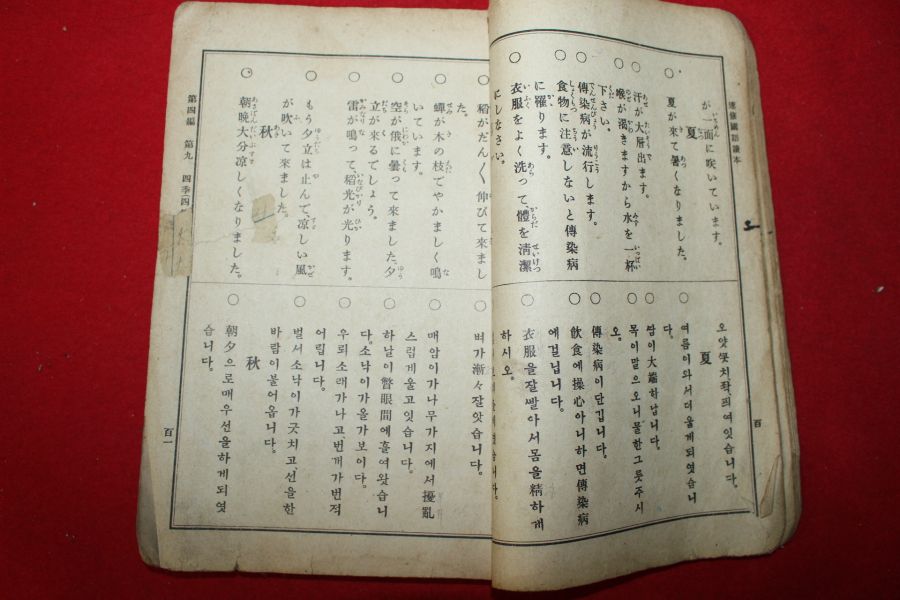 速修國語讀本
が一面に咲いています。
夏
○ 夏が來て暑くなりました。
○ 汗が大層出ます。
○ 喉が渇きますから水を一杯
下さい。
○ 傳染病が流行します。
○ 食物に注意しないと傳染病
に罹ります。
○ 衣服をよく洗って、體を淸潔
にしなさい。
夏
○ 여름이와서더웁게되엿습니
다。
○ 땀이大端하납니다。
○ 목이말으오니물한그릇주시
오。
○ 傳染病이단깁니다。
○ 飮食에操心아니하면傳染病
에걸닙니다。
○ 衣服을잘빨아서몸을精하게
하시오。
百
○ 稻がだん〱伸びて來まし
た。
○ 蟬が木の枝でやかましく鳴
いています。
○ 空が俄に曇って來ました、夕
立が來るでしょう。
○ 雷が鳴って、稻光が光ります。
○ もう夕立は止んで、凉しい風
が吹いて來ました。
秋
○ 朝晩大分凉しくなりました。
第四編 第九 四季(四
○ 벼가漸々잘앗습니다。
○ 매암이가나무가지에서擾亂
스럽게울고잇습니다。
○ 하날이瞥眼間에흘여왓습니
다。소낙이가올가보이다。
○ 우뢰소래가나고、번개가번적
어립니다。
○ 벌서소낙이가긋치고、선을한
바람이불어옵니다。
秋
○ 朝夕으로매우선을하게되엿
습니다。
百一